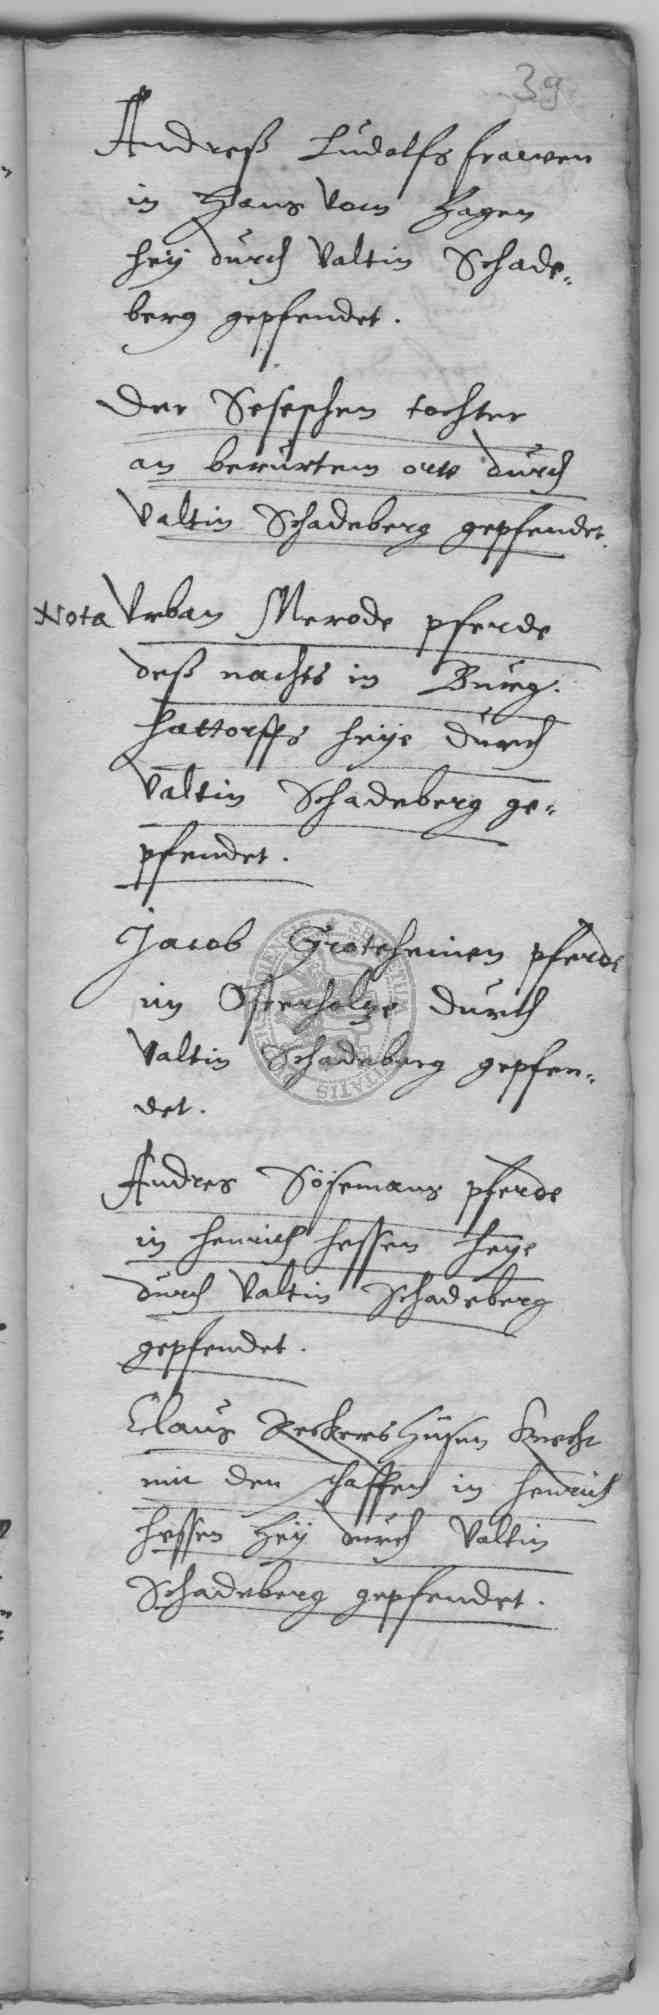 39
Andreß Ludolfs frawen
in Hans vom Hagen
heÿ durch Valtin Schade-
berg gepfendet.
Der Sesephen tochter
an berurtem orte durch
Valtin Schadeberg gepfendet.
Nota Vrban Merode pferde
deß nachts in Burg.
Hattorffs heÿe durch
Valtin Schadeberg ge-
pfendet.
Jacob Groteheinen pferde
im Osterholze durch
Valtin Schadeberg gepfen-
det.
Andres Sösemans pferde
in Henrich Hessen heÿe
durch Valtin Schadeberg
gepfendet.
Claus Reckershusen Knecht
mit den schaffen in Henrich
Hessen Heÿ durch Valtin
Schadeberg gepfendet.